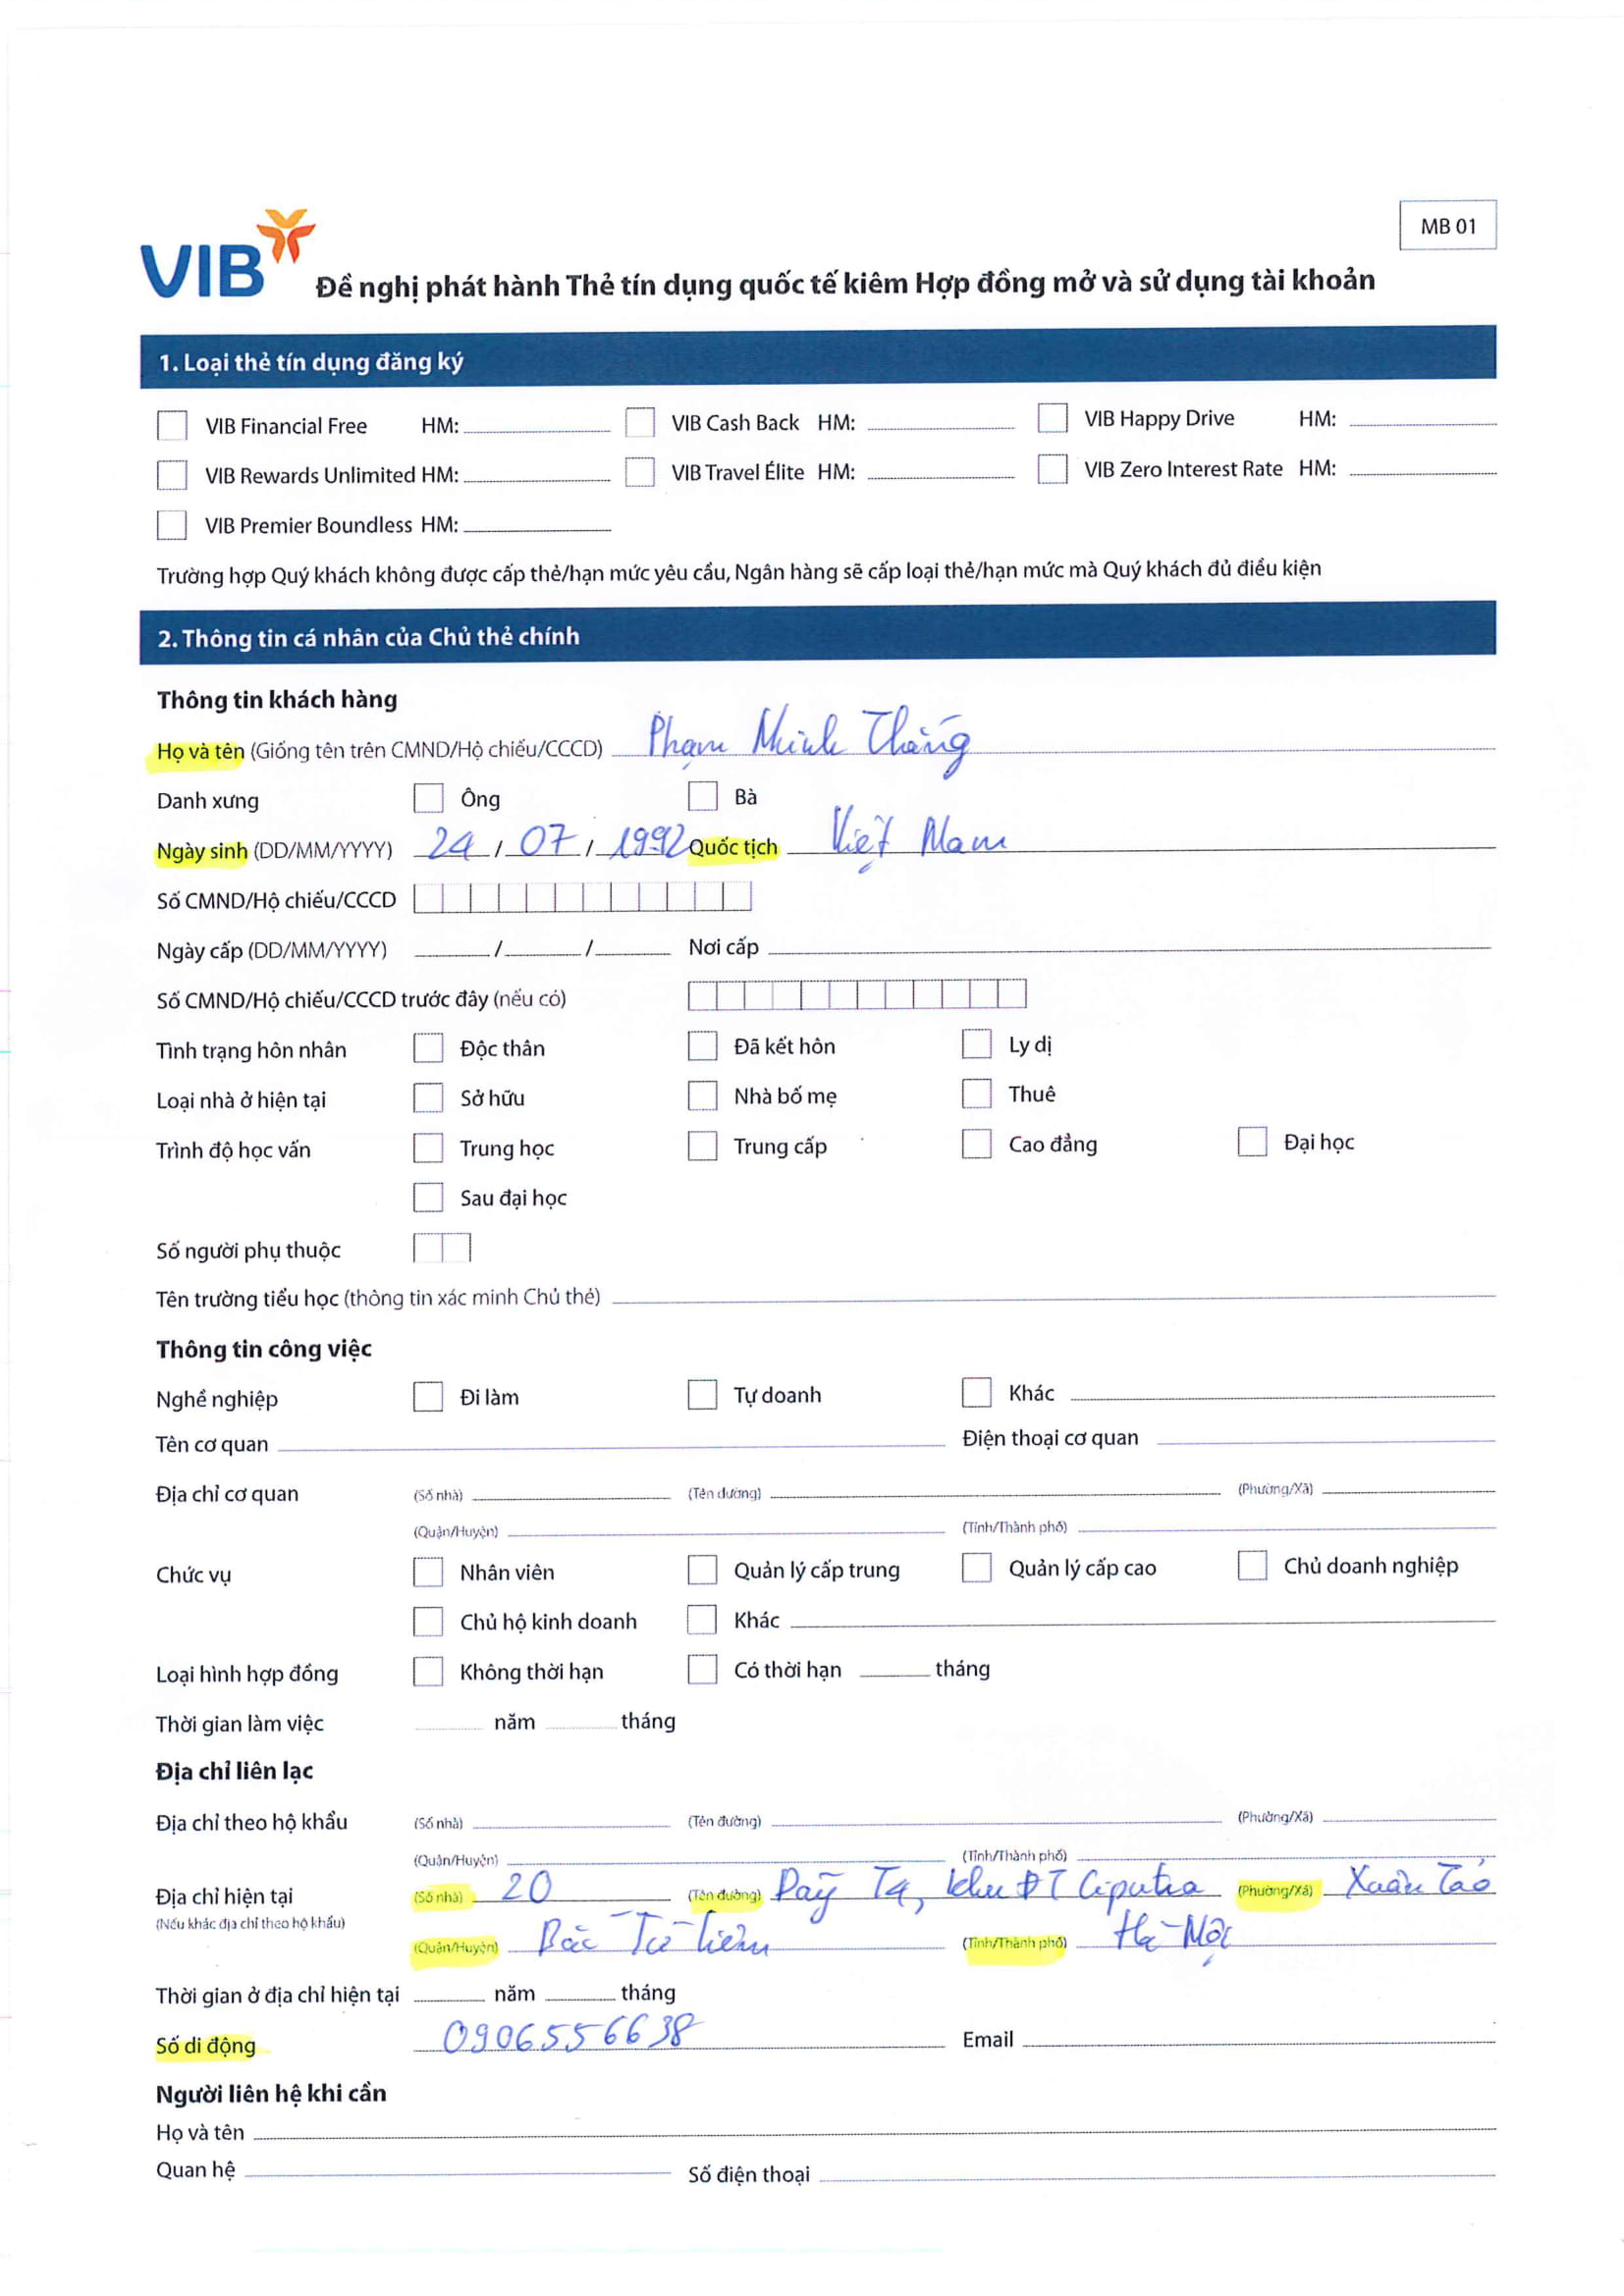 MB 01
VIB Đề nghị phát hành Thẻ tín dụng quốc tế kiêm Hợp đồng mở và sử dụng tài khoản
1. Loại thẻ tín dụng đăng ký
VIB Financial Free HM: VIB Cash Back HM: VIB Happy Drive HM:
VIB Rewards Unlimited HM: VIB Travel Élite HM: VIB Zero Interest Rate HM:
VIB Premier Boundless HM:
Trường hợp Quý khách không được cấp thẻ/hạn mức yêu cầu, Ngân hàng sẽ cấp loại thẻ/hạn mức mà Quý khách đủ điều kiện
2. Thông tin cá nhân của Chủ thẻ chính
Thông tin khách hàng
Họ và tên (Giống tên trên CMND/Hộ chiếu/CCCD) Phạm Minh Thắng
Danh xưng Ông Bà
Ngày sinh (DD/MM/YYYY) 24 / 07 / 1992 Quốc tịch Việt Nam
Số CMND/Hộ chiếu/CCCD
Ngày cấp (DD/MM/YYYY) / / Nơi cấp
Số CMND/Hộ chiếu/CCCD trước đây (nếu có)
Tình trạng hôn nhân Độc thân Đã kết hôn Ly dị
Loại nhà ở hiện tại Sở hữu Nhà bố mẹ Thuê
Trình độ học vấn Trung học Trung cấp Cao đẳng Đại học
Sau đại học
Số người phụ thuộc
Tên trường tiểu học (thông tin xác minh Chủ thẻ)
Thông tin công việc
Nghề nghiệp Đi làm Tự doanh Khác
Tên cơ quan Điện thoại cơ quan
Địa chỉ cơ quan (Số nhà) (Tên đường) (Phường/Xã)
(Quận/Huyện) (Tỉnh/Thành phố)
Chức vụ Nhân viên Quản lý cấp trung Quản lý cấp cao Chủ doanh nghiệp
Chủ hộ kinh doanh Khác
Loại hình hợp đồng Không thời hạn Có thời hạn tháng
Thời gian làm việc năm tháng
Địa chỉ liên lạc
Địa chỉ theo hộ khẩu (Số nhà) (Tên đường) (Phường/Xã)
(Quận/Huyện) (Tỉnh/Thành phố)
Địa chỉ hiện tại (Số nhà) 20 (Tên đường) Dãy T4, khu ĐT Ciputra (Phường/Xã) Xuân Tảo
(Nếu khác địa chỉ theo hộ khẩu)
(Quận/Huyện) Bắc Từ Liêm (Tỉnh/Thành phố) Hà Nội
Thời gian ở địa chỉ hiện tại năm tháng
Số di động 0906556638 Email
Người liên hệ khi cần
Họ và tên
Quan hệ Số điện thoại